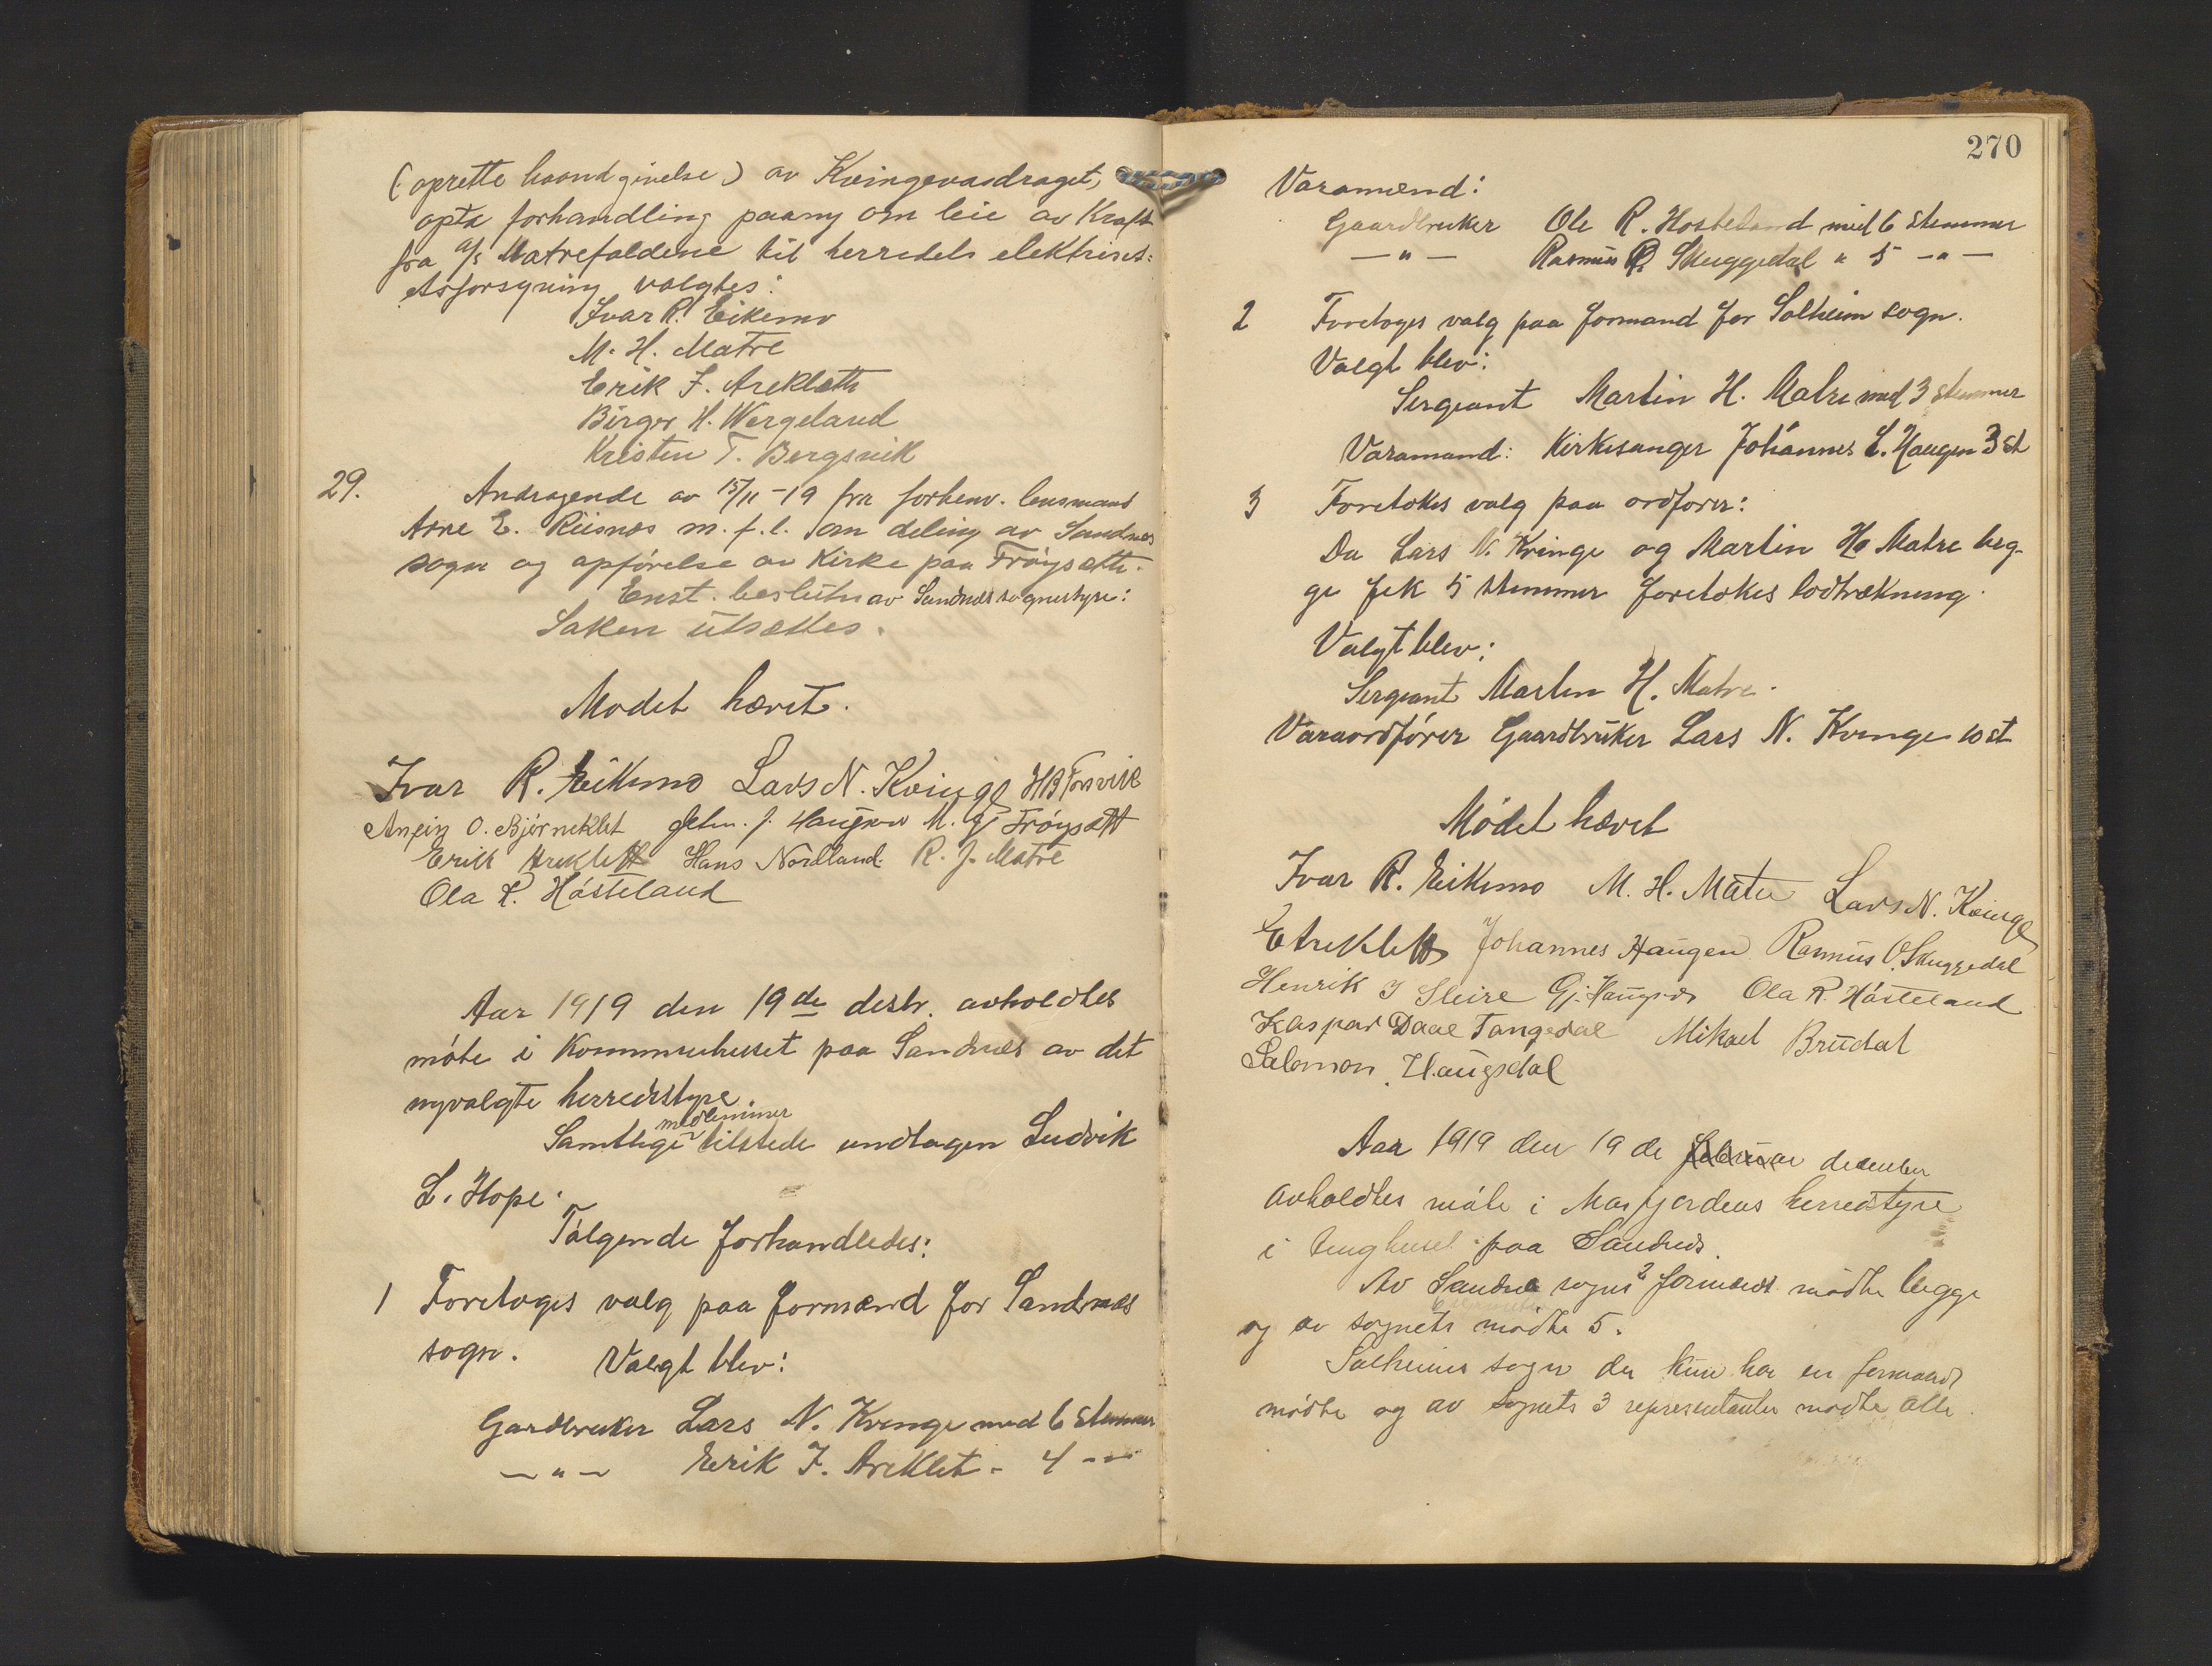 (oprette haandgivelse) av Kvingevasdraget,
opta forhandling paany om leie av Kraft
fra A/s Matrefaldene til herredets elektrisit-
etsforsyning valgtes:
Ivar R. Eikemo
M. H. Matre
Erik J. Areklett
Birger H. Wergeland
Kristen T. Bergsvik
29. Andragende av 15/11-19 fra forhenv. lensmand
Arne E. Riisnes m. fl. om deling av Sandnes
sogn og opførelse av Kirke paa Frøysett.
Enst. beslutn av Sandnes sognestyre:
Saken utsættes.
Mødet hævet.
Ivar R. Eikemo Lars N. Kvinge HB Fosvik
O. Bjørneklet J. Haugsvær M. G Frøysett
Erik Areklett Hans Nordland. R. J. Matre
Ola R. Hósteland
Aar 1919 den 19de desbr. avholdtes
møte i Kommunehuset paa Sandnes av det
nyvalgte herredsstyre.
medlemmer
Samtlige tilstede undtagen Ludvik
L. Hope.
Følgende forhandledes:
1 Foretoges valg paa formænd for Sandnæs
sogn. Valgt blev:
Gardbruker Lars N. Kvinge med 6 stemmer
—"— Erik J. Areklet - 4 -"-
270
Varamænd:
Gaardbruker Ole R. Hosteland med 6 stemmer
—"— Rasmus O. Skuggedal " 5 —"—
2 Foretoges valg paa formand for Solheim sogn.
Valgt blev:
Sergeant Martin H. Matre med 3 stemmer
Varamand: Kirkesanger Johannes L. Haugen 3 st
3 Foretokes valg paa ordfører:
Da Lars N. Kvinge og Martin H. Matre beg-
ge fek 5 stemmer foretokes lodtrækning.
Valgt blev:
Sergeant Martin H. Matre.
Varaordfører Gaardbruker Lars N. Kvinge 10 st
Mødet hævet
Ivar R. Eikemo M. H. Matre Lars N. Kvinge
E Areklett Johannes Haugen Rasmus O. Skuggedal
Henrik J Sleire Gj. Haugsvær Ola R. Hósteland
Kaspar Daae Tangedal Mikael Brudal
Salomon Haugsdal
Aar 1919 den 19 de februar december
avholdtes møte i Masfjordens herredstyre
i tinghuset paa Sandnes.
Av Sandnes sogns 2 formænd mødte begge
og av sognets mødte 5.
Solheims sogn der kun har en formand
mødte og av sognets 3 representanter mødte alle.